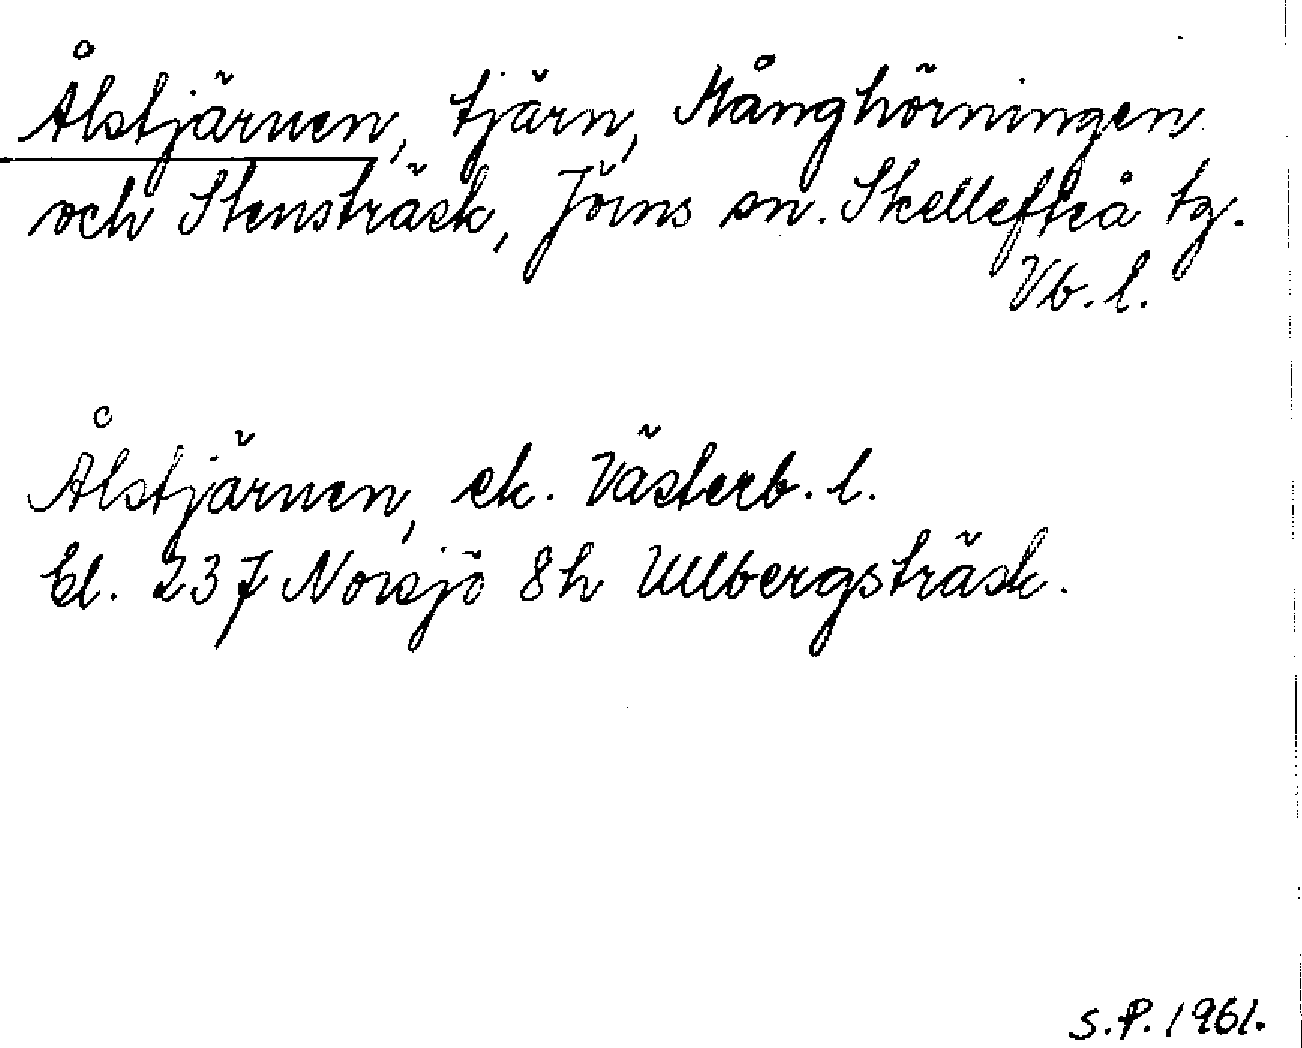 Ålstjärnen, tjärn, Månghörningen
och Stensträsk, Jörns sn. Skellefteå tg.
Vb. l.
Ålstjärnen, ek. Västerb. l.
bl. 237 Norsjö 8h Ullbergsträsk.
S.P. 1961.